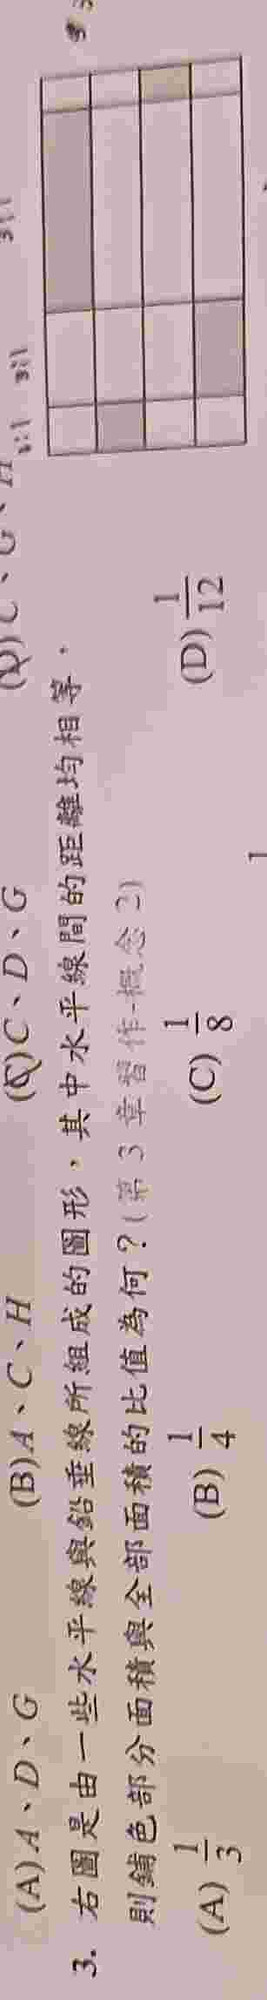 (A)A、D、G (B)A、C、H (C)C、D、G
3. 右圖是由一些水平線與鉛垂線所組成的圖形，其中水平線間的距離均相等，
則鋪色部分面積與全部面積的比值為何？(第3章習作-概念2)
(A) 1/3 (B) 1/4 (C) 1/8 (D) 1/12